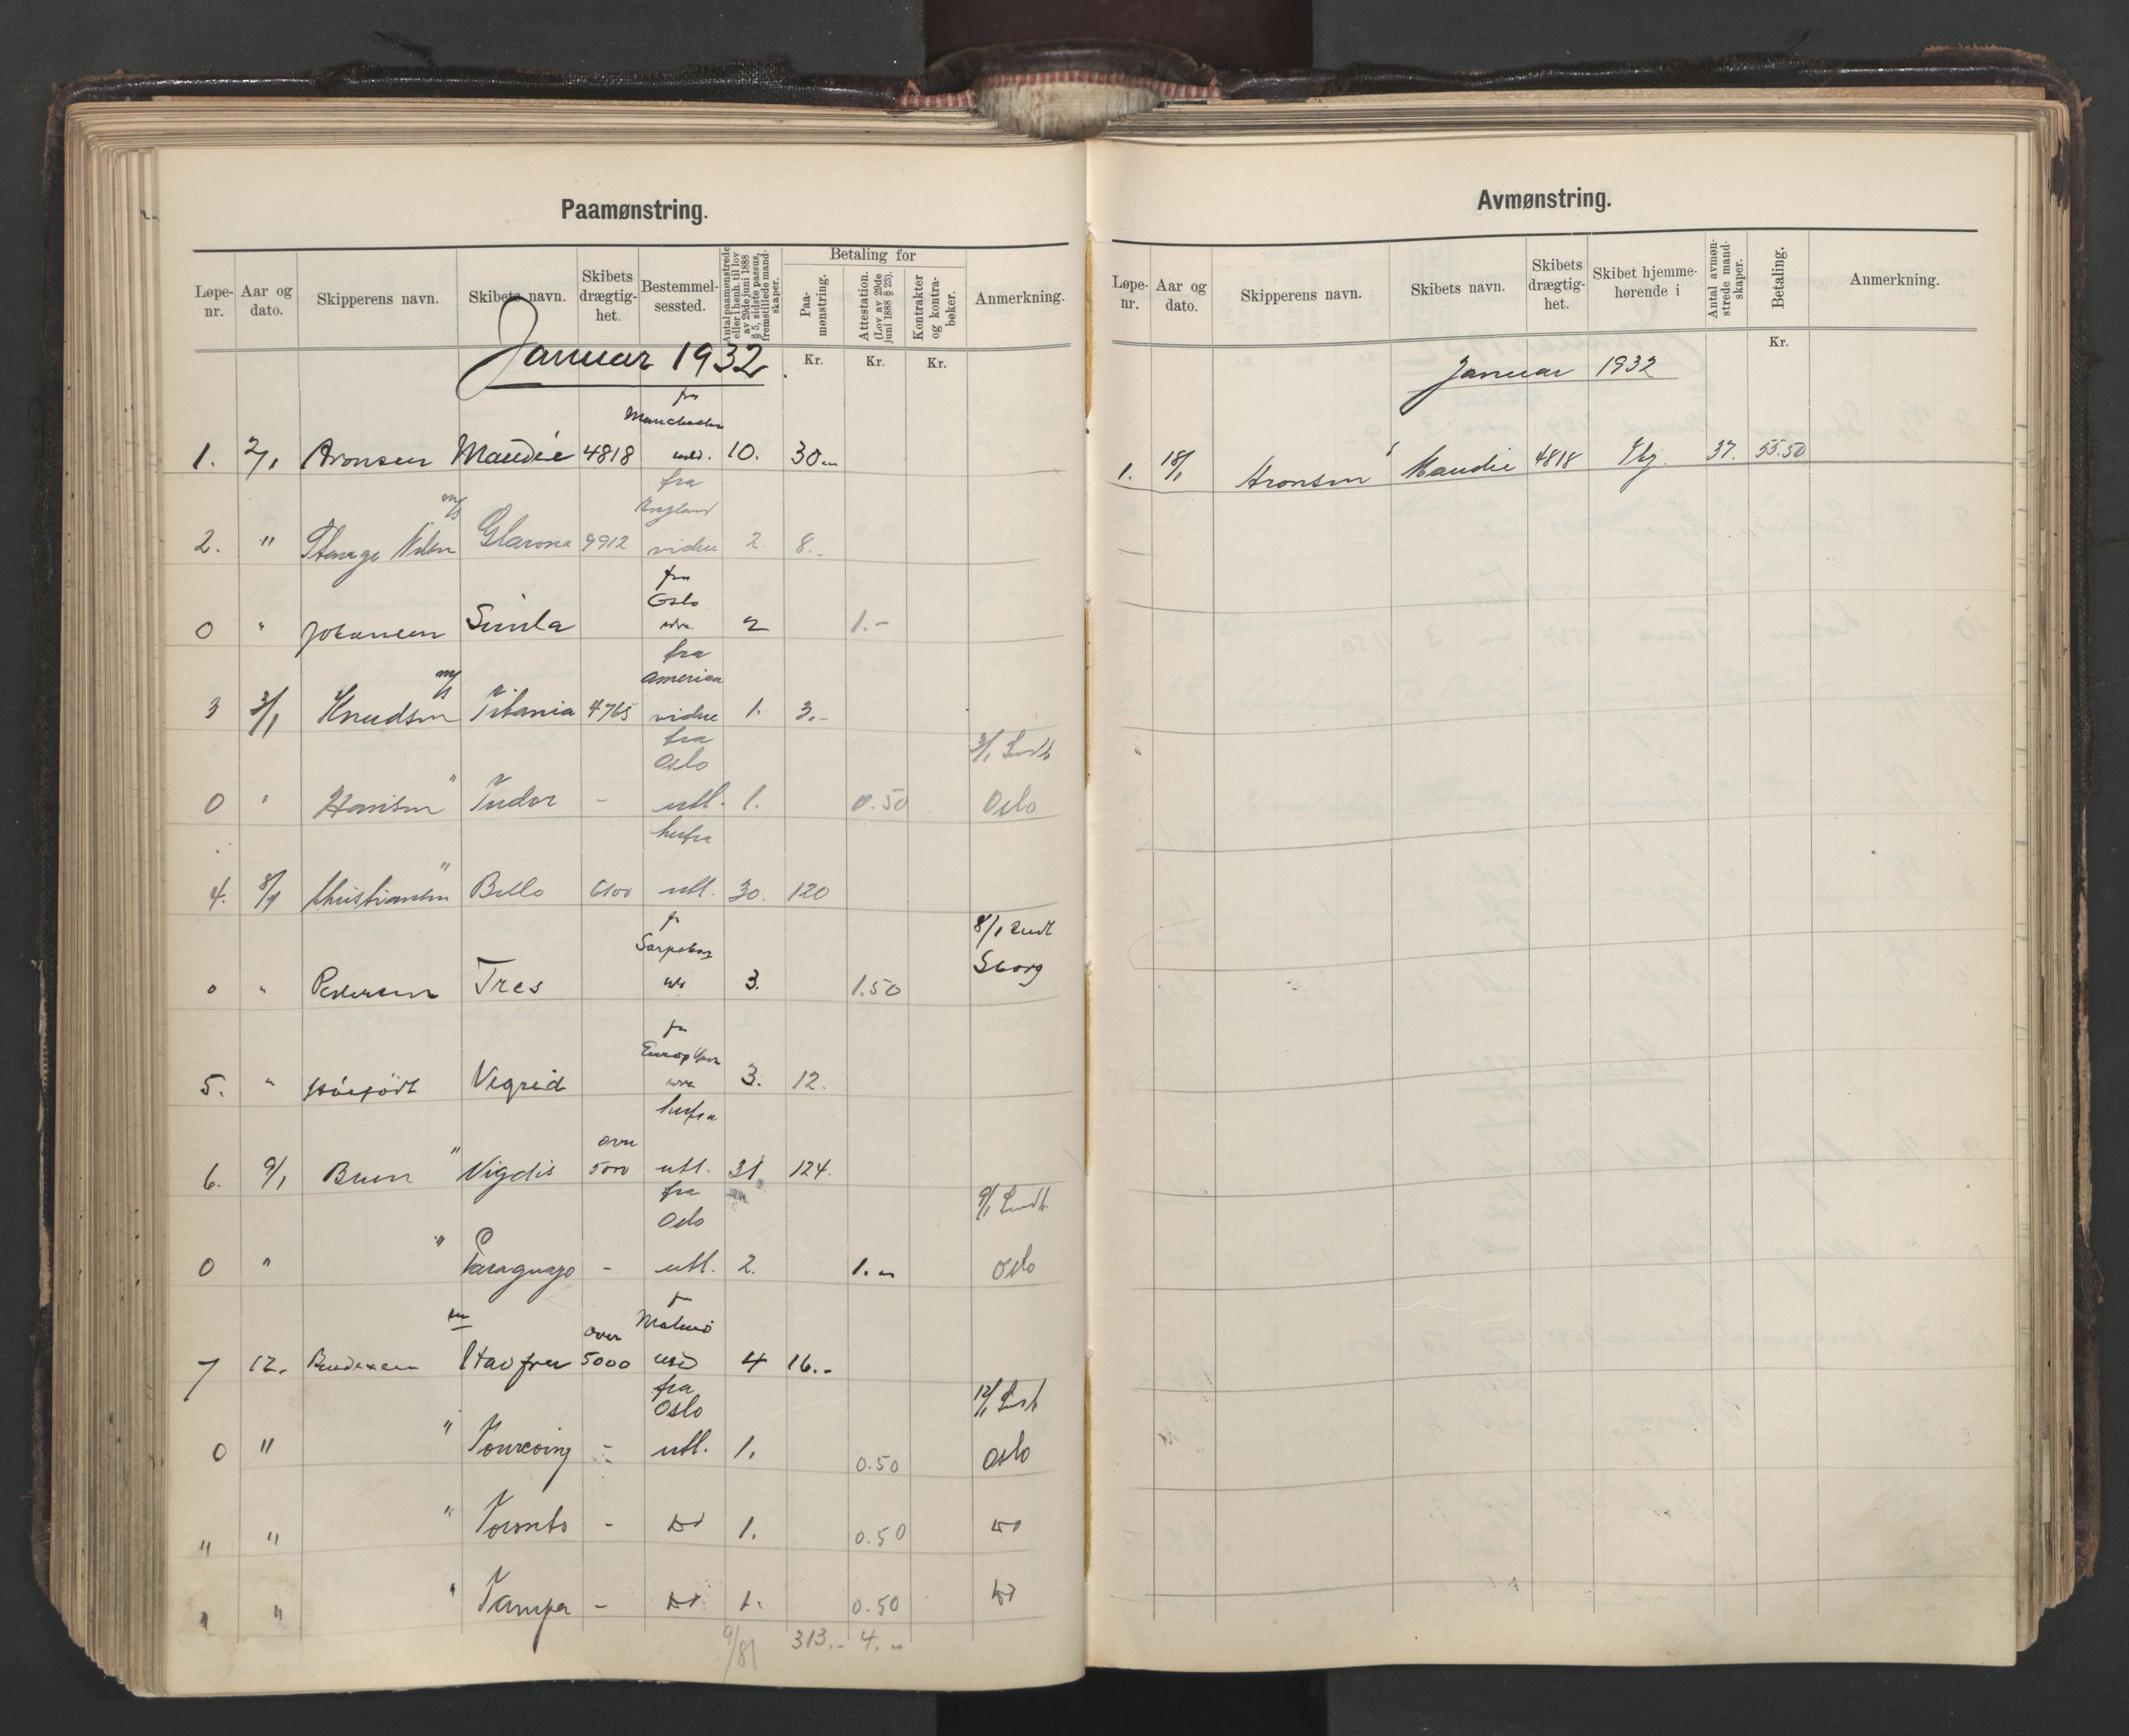 Paamønstring.
Løpe-nr. Aar og dato. Skipperens navn. Skibets navn. Skibets drægtig-het. Bestemmel-sessted. Antal paamønstrede eller i henh. til lov av 29de juni 1888 § 5, sidste passus, fremstillede mand-skaper. Betaling for Paa-mønstring. Attestation. (Lov av 29de juni 1888 § 23). Kontrakter og kontra-bøker. Anmerkning.
Kr. Kr. Kr.
Januar 1932.
fra
Manchester
1. 2/1 Aronsen Maudie 4818 10. 30
fra
England
2. " m/s Glarona 9912 videre 2. 8.-
fra
Oslo
0 " Johansen Simla 2 1.-
fra
America
3 3/1 Knudsen m/s Titania 4765 videre 1. 3.-
fra
Oslo 3/1
0 " " Tudor - utl. 1. 0.50 Oslo
herfra
4. 8/1 Christiansen " Bello 6100 utl. 30. 120
fr
Sarpsborg 8/1 Sendt
0 " Pedersen Tres 3. 1.50 Sborg
fra
5. " Vigrid 3. 12.
herfra
over
6. 9/1 Brun " Vigdis 5000 utl. 31 124.
fra
Oslo 9/1 Sendt
0 " " Paraguay - utl. 2. 1.- Oslo
f
over Malmö
7 12. Havfru 5000 4 16.-
fra
Oslo 12/1
0 " " Tourcoing - utl. 1. 0.50 Oslo
" " " Toronto - do 1. 0.50 do
" " " Tampa - do 1. 0.50 do
9/81 313.- 4.-
Avmønstring.
Løpe-nr. Aar og dato. Skipperens navn. Skibets navn. Skibets drægtig-het. Skibet hjemme-hørende i Antal avmøn-strede mand-skaper. Betaling. Anmerkning.
Kr.
Januar 1932
1. 18/1 Aronsen Maudie 4818 Tbg. 37. 55.50